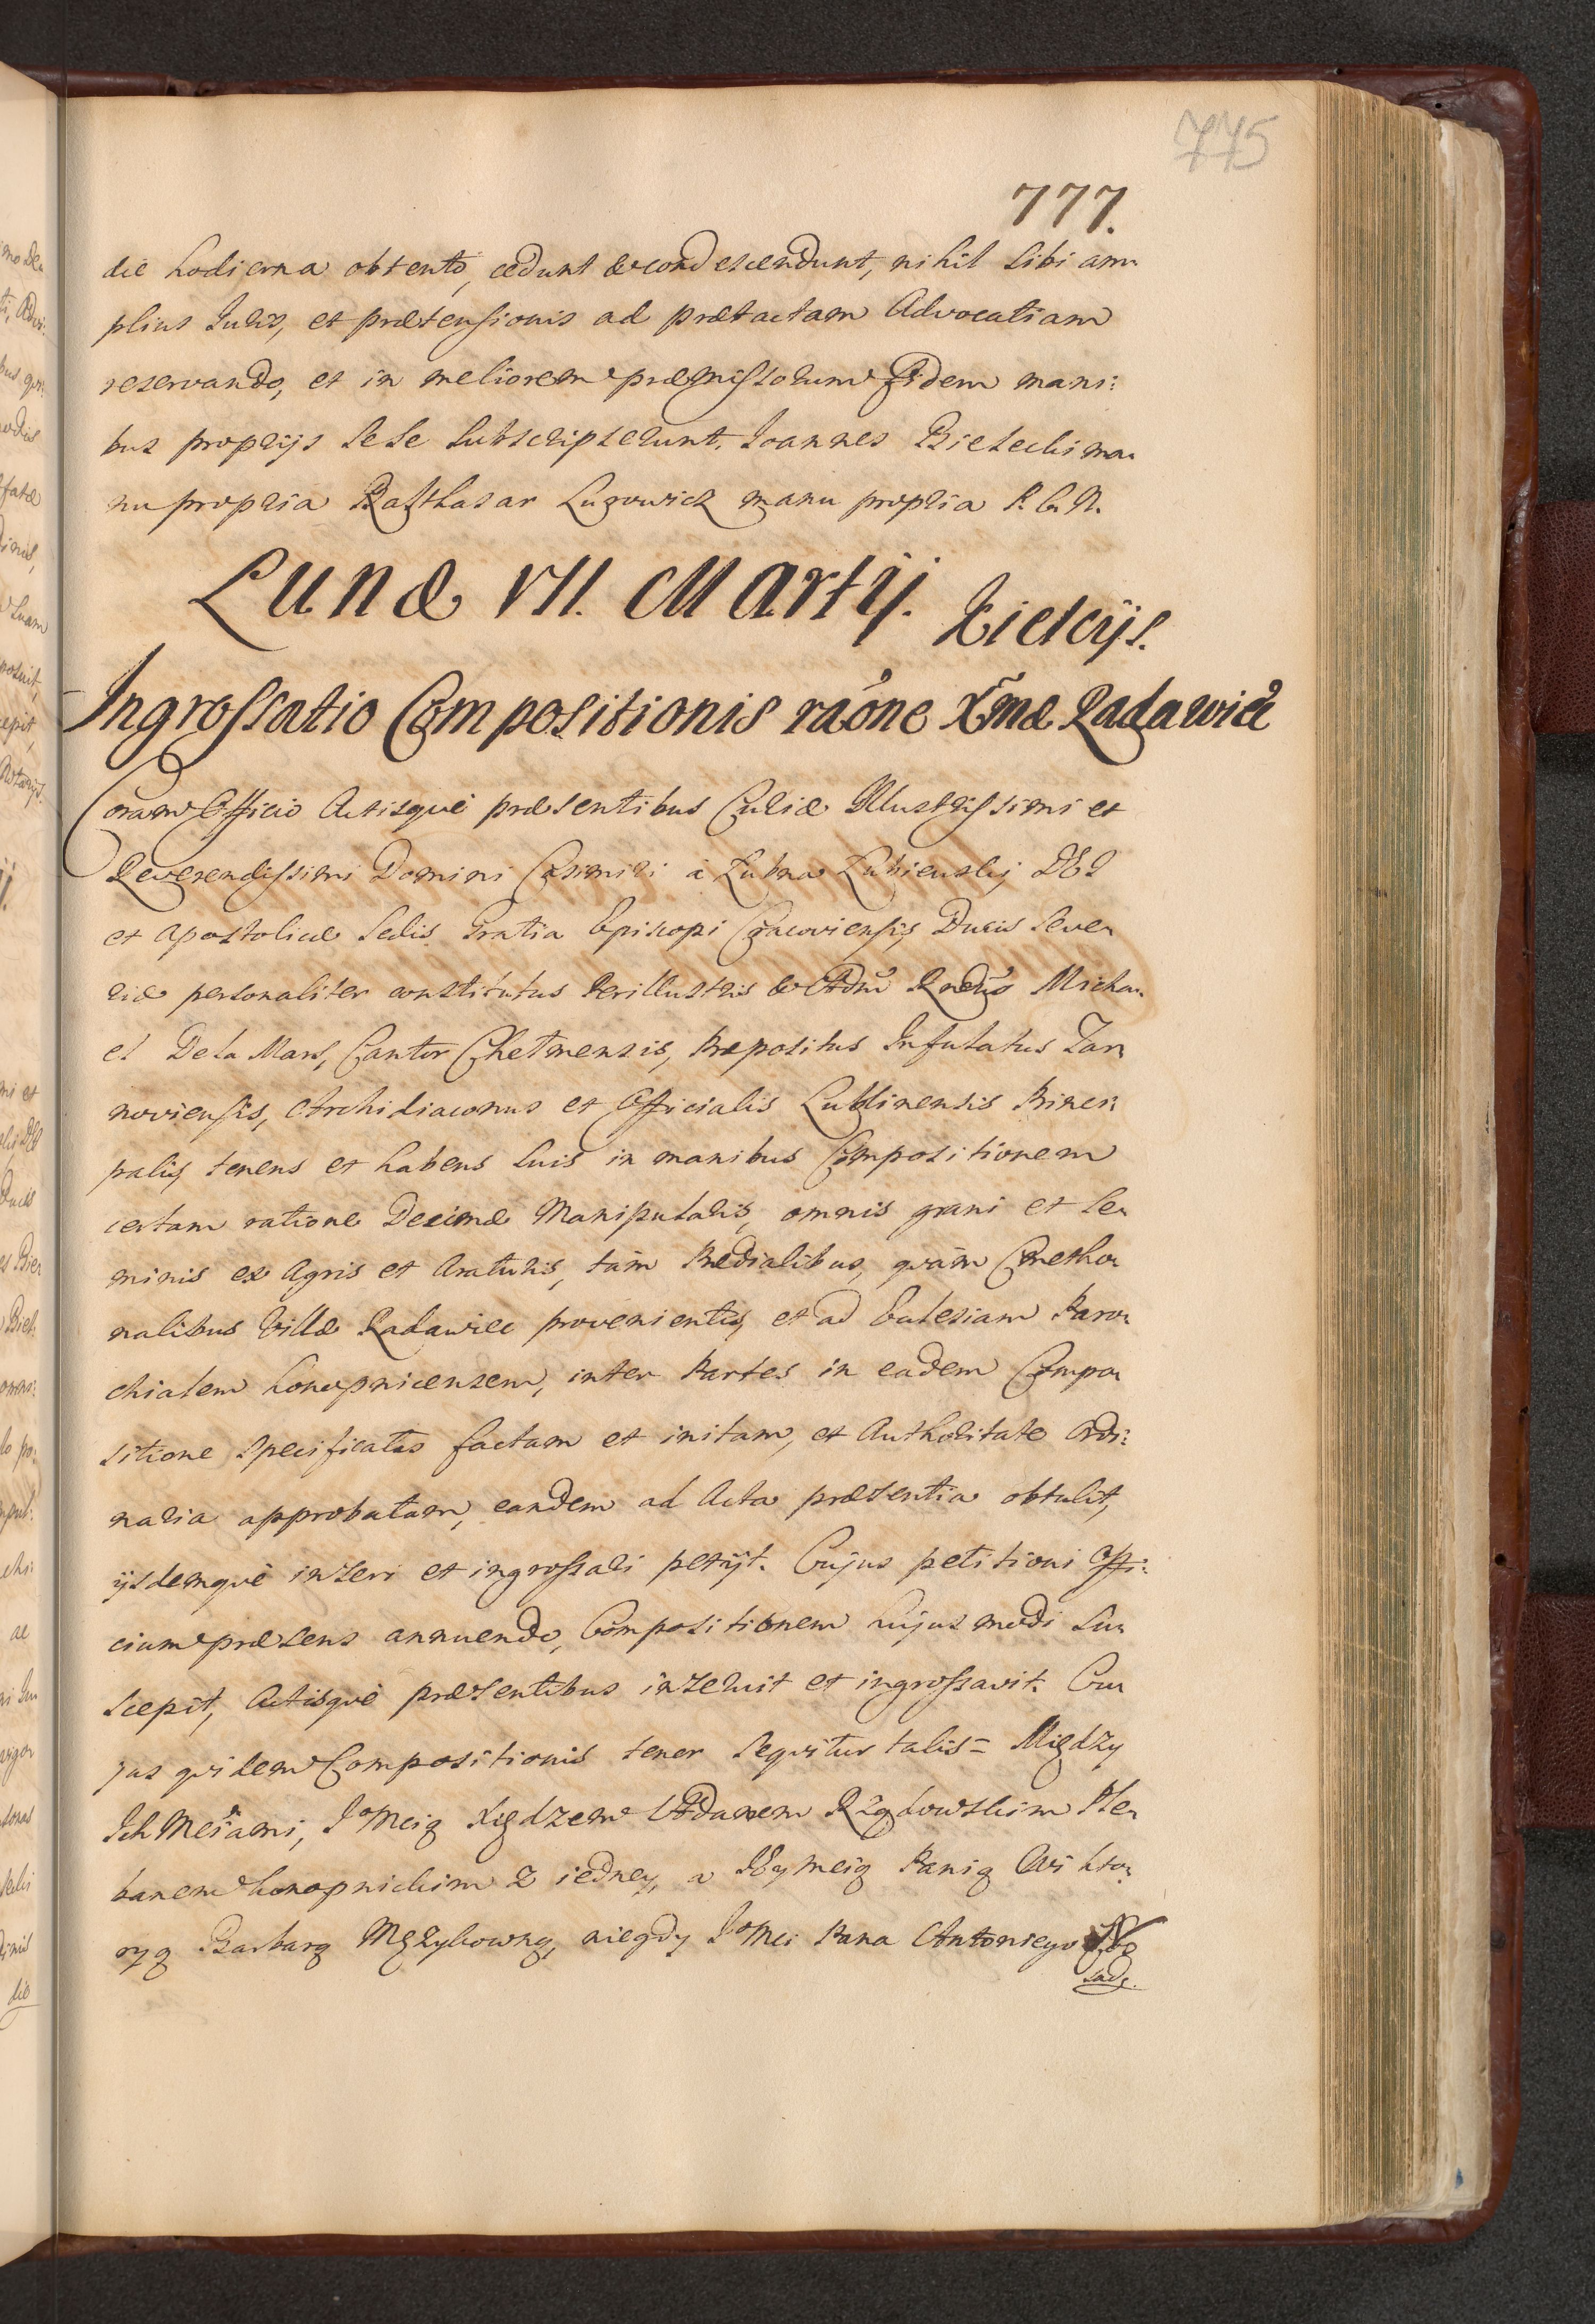 775
777.
die hodierna obtento, cedunt & condescendunt, nihil sibi am„
plius Juris, et prætensionis ad prætactam Advocatiam
reservando, et in meliorem præmissorum Fidem mani:
bus proprijs sese subscripserunt. Joannes Bielecki ma„
nu propria Balthasar Lugowicz manu propria
Lunæ VII. Martij. Kielcijs.
Ingrossatio Compositionis raõne Xmæ Radawiec
Coram Officio Actisquè præsentibus Curiæ Illustrissimi et
Reverendissimi Domini Casimiri à Łubna Łubienskj DEI
et Apostolicæ Sedis Gratia Episcopi Cracoviensis, Ducis Seve„
riæ personaliter constitutus Perillustris & Adm̃ Rndũs Micha„
el De la Mars, Cantor Chełmensis, Præpositus Infulatus Tar„
noviensis, Archidiaconus et Officialis Lublinensis Princi„
palis, tenens et habens suis in manibus Compositionem
certam ratione Decimæ Manipularis, omnis grani et se„
minis ex Agris et Araturis, tàm Prædialibus, quàm Cmetho„
nalibus Villæ Radawiec provenientis, et ad Ecclesiam Paro„
chialem Konopnicensem, inter Partes in eadem Compo„
sitione specificatas factam et initam, et Authoritate Ordi:
naria approbatam, eandem ad Acta præsentia obtulit,
ijsdemquè inseri et ingrossari petijt. Cujus petitioni Offi:
cium præsens annuendo, Compositionem hujusmodi sus„
scepit, Actisquè præsentibus inseruit et ingrossavit. Cu„
jus quidem Compositionis tenor sequitur talis= Między
Ich Mściami, JoMcią Xiędzem Adamem Rządowskim Ple„
banem Konopnickim z iedney, a Jeymcią Panią Wikto„
ryą Barbarą Mężykowną, niegdy JoMci Pana Antoniego
sadz.